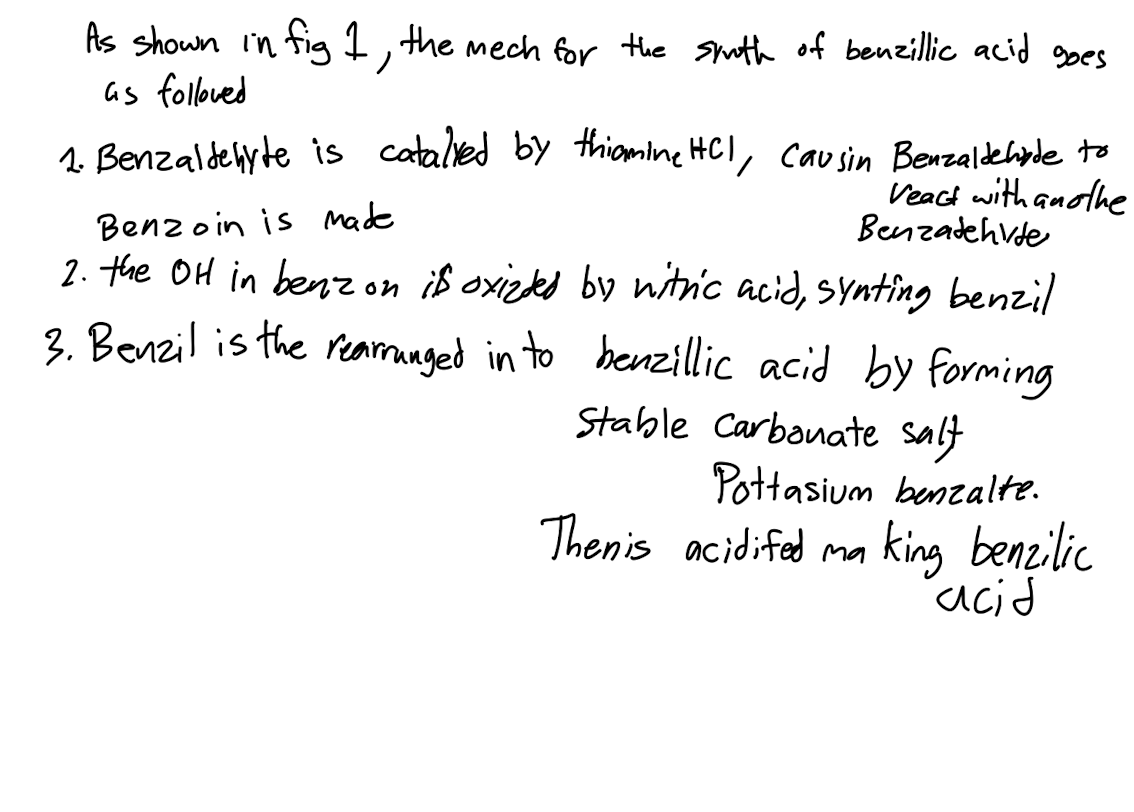 As shown in fig 1, the mech for the synth of benzillic acid goes
as followed
1. Benzaldehyte is catalyed by thiamine HCl, causin Benzaldehyde to
react with anothe
Benzoin is made
Benzadehyde
2. the OH in benzon is oxizded by nitric acid, synting benzil
3. Benzil is the rearrunged in to benzillic acid by forming
stable carbonate salt
Pottasium benzalte.
Then is acidifed making benzilic
acid